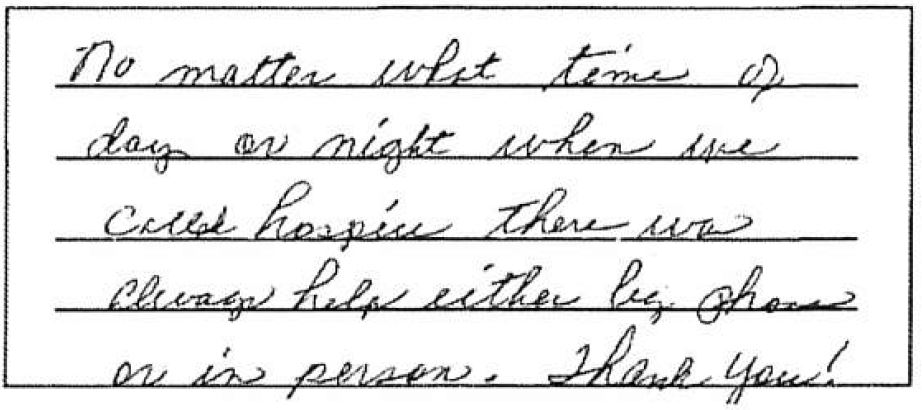 No matter what time of
day or night when we
called hospice there was
always help either by phone
or in person. Thank you!